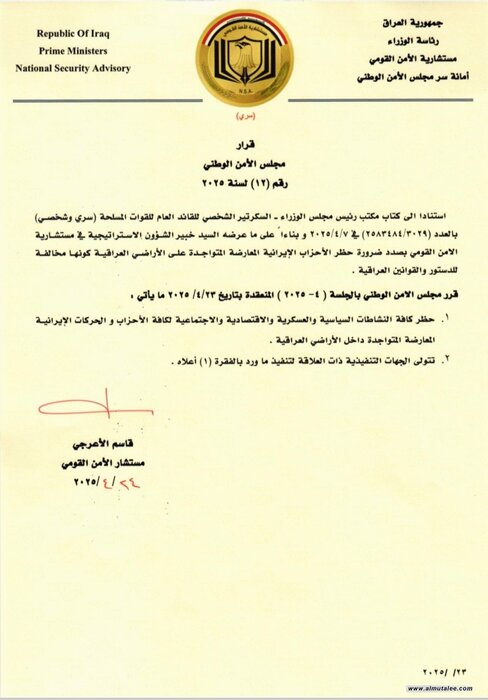 Republic Of Iraq
Prime Ministers
National Security Advisory
جمهورية العراق
رئاسة الوزراء
مستشارية الأمن القومي
أمانة سر مجلس الأمن الوطني
N.S.A.
(سري)
قرار
مجلس الأمن الوطني
رقم (١٢) لسنة ٢٠٢٥
استنادا الى كتاب مكتب رئيس مجلس الوزراء ـ السكرتير الشخصي للقائد العام للقوات المسلحة (سري وشخصي)
بالعدد (٢٥٨٣٤٨٤/٣٠٢٩) في ٢٠٢٥/٤/٧ و بناءاً على ما عرضه السيد خبير الشؤون الاستراتيجية في مستشارية
الامن القومي بصدد ضرورة حظر الأحزاب الإيرانية المعارضة المتواجدة على الأراضي العراقية كونها مخالفة
للدستور والقوانين العراقية .
قرر مجلس الامن الوطني بالجلسة (٤- ٢٠٢٥ ) المنعقدة بتاريخ ٤/٢٣/ ٢٠٢٥ ما يأتي :
١. حظر كافة النشاطات السياسية والعسكرية والاقتصادية والاجتماعية لكافة الأحزاب و الحركات الإيرانية
المعارضة المتواجدة داخل الأراضي العراقية .
٢. تتولى الجهات التنفيذية ذات العلاقة لتنفيذ ما ورد بالفقرة (١) أعلاه .
قاسم الأعرجي
مستشار الأمن القومي
٢٠٢٥/٤/٢٤
٢٠٢٥/ /٢٣
www.almutalee.com